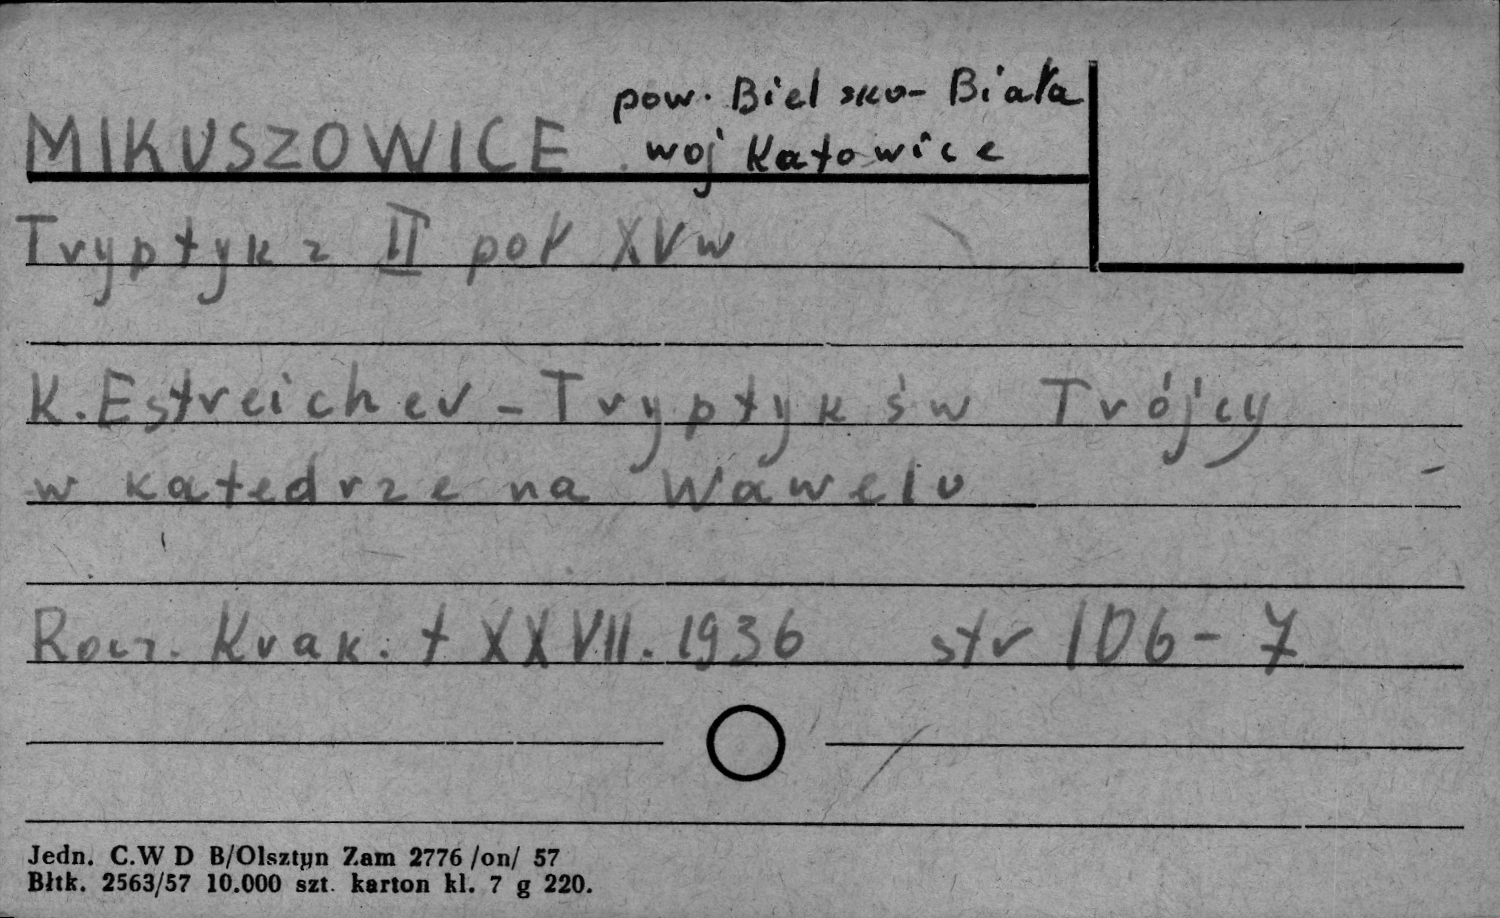 MIKUSZOWICE pow. Bielsko-Biała
woj Katowice
Tryptyk z II poł XVw
K. Estreicher - Tryptyk św Trójcy
w katedrze na Wawelu
Rocz. Krak. t XXVII. 1936 str 106-7
Jedn. C.W D B/Olsztyn Zam 2776 /on/ 57
Błtk. 2563/57 10.000 szt. karton kl. 7 g 220.